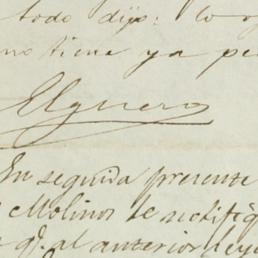 todo dijo: lo
no tiene ya pe
Elguero
En seguida presente
Molinos se
qe. al anterior